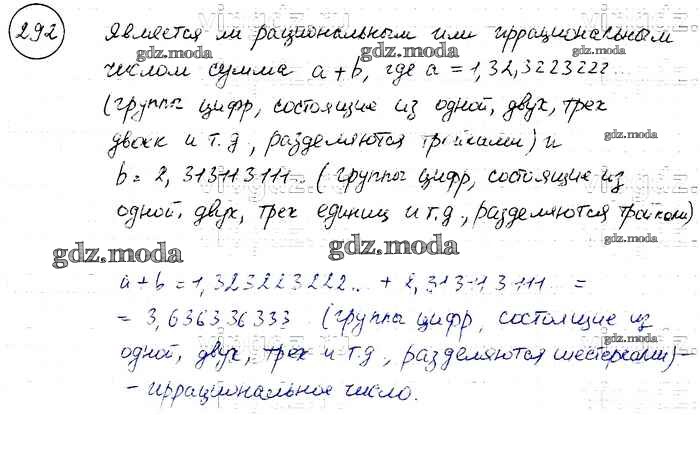 292
Является ли рациональным или иррациональным
числом сумма a + b, где a = 1,32,3223222...
(группы цифр, состоящие из одной, двух, трех
двоек и т.д, разделяются тройками) и
b = 2, 313113111... (группы цифр, состоящие из
одной, двух, трех единиц и т.д, разделяются тройками)
a + b = 1,323223222... + 2,313113111... =
= 3,636336333 (группы цифр, состоящие из
одной, двух, трех и т.д, разделяются шестерками) -
- иррациональное число.
gdz.moda
gdz.moda
gdz.moda
gdz.moda
gdz.moda
gdz.moda
gdz.moda
gdz.moda
gdz.moda